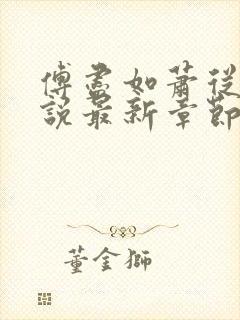 傅盡如蕭從
說最新章節
董金獅